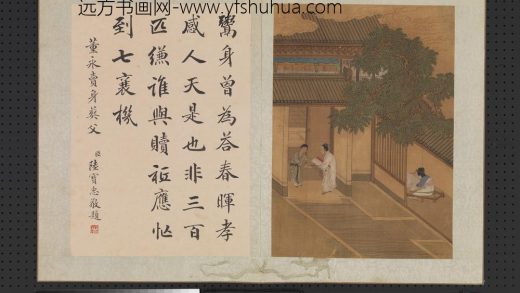 远方书画网-www.yfshuhua.com
鬻身曾為荅春暉孝
感人天是也非三百
匹縑誰與贖秪應忙
到七襄機
董永賣身葬父
臣陸寶忠敬題